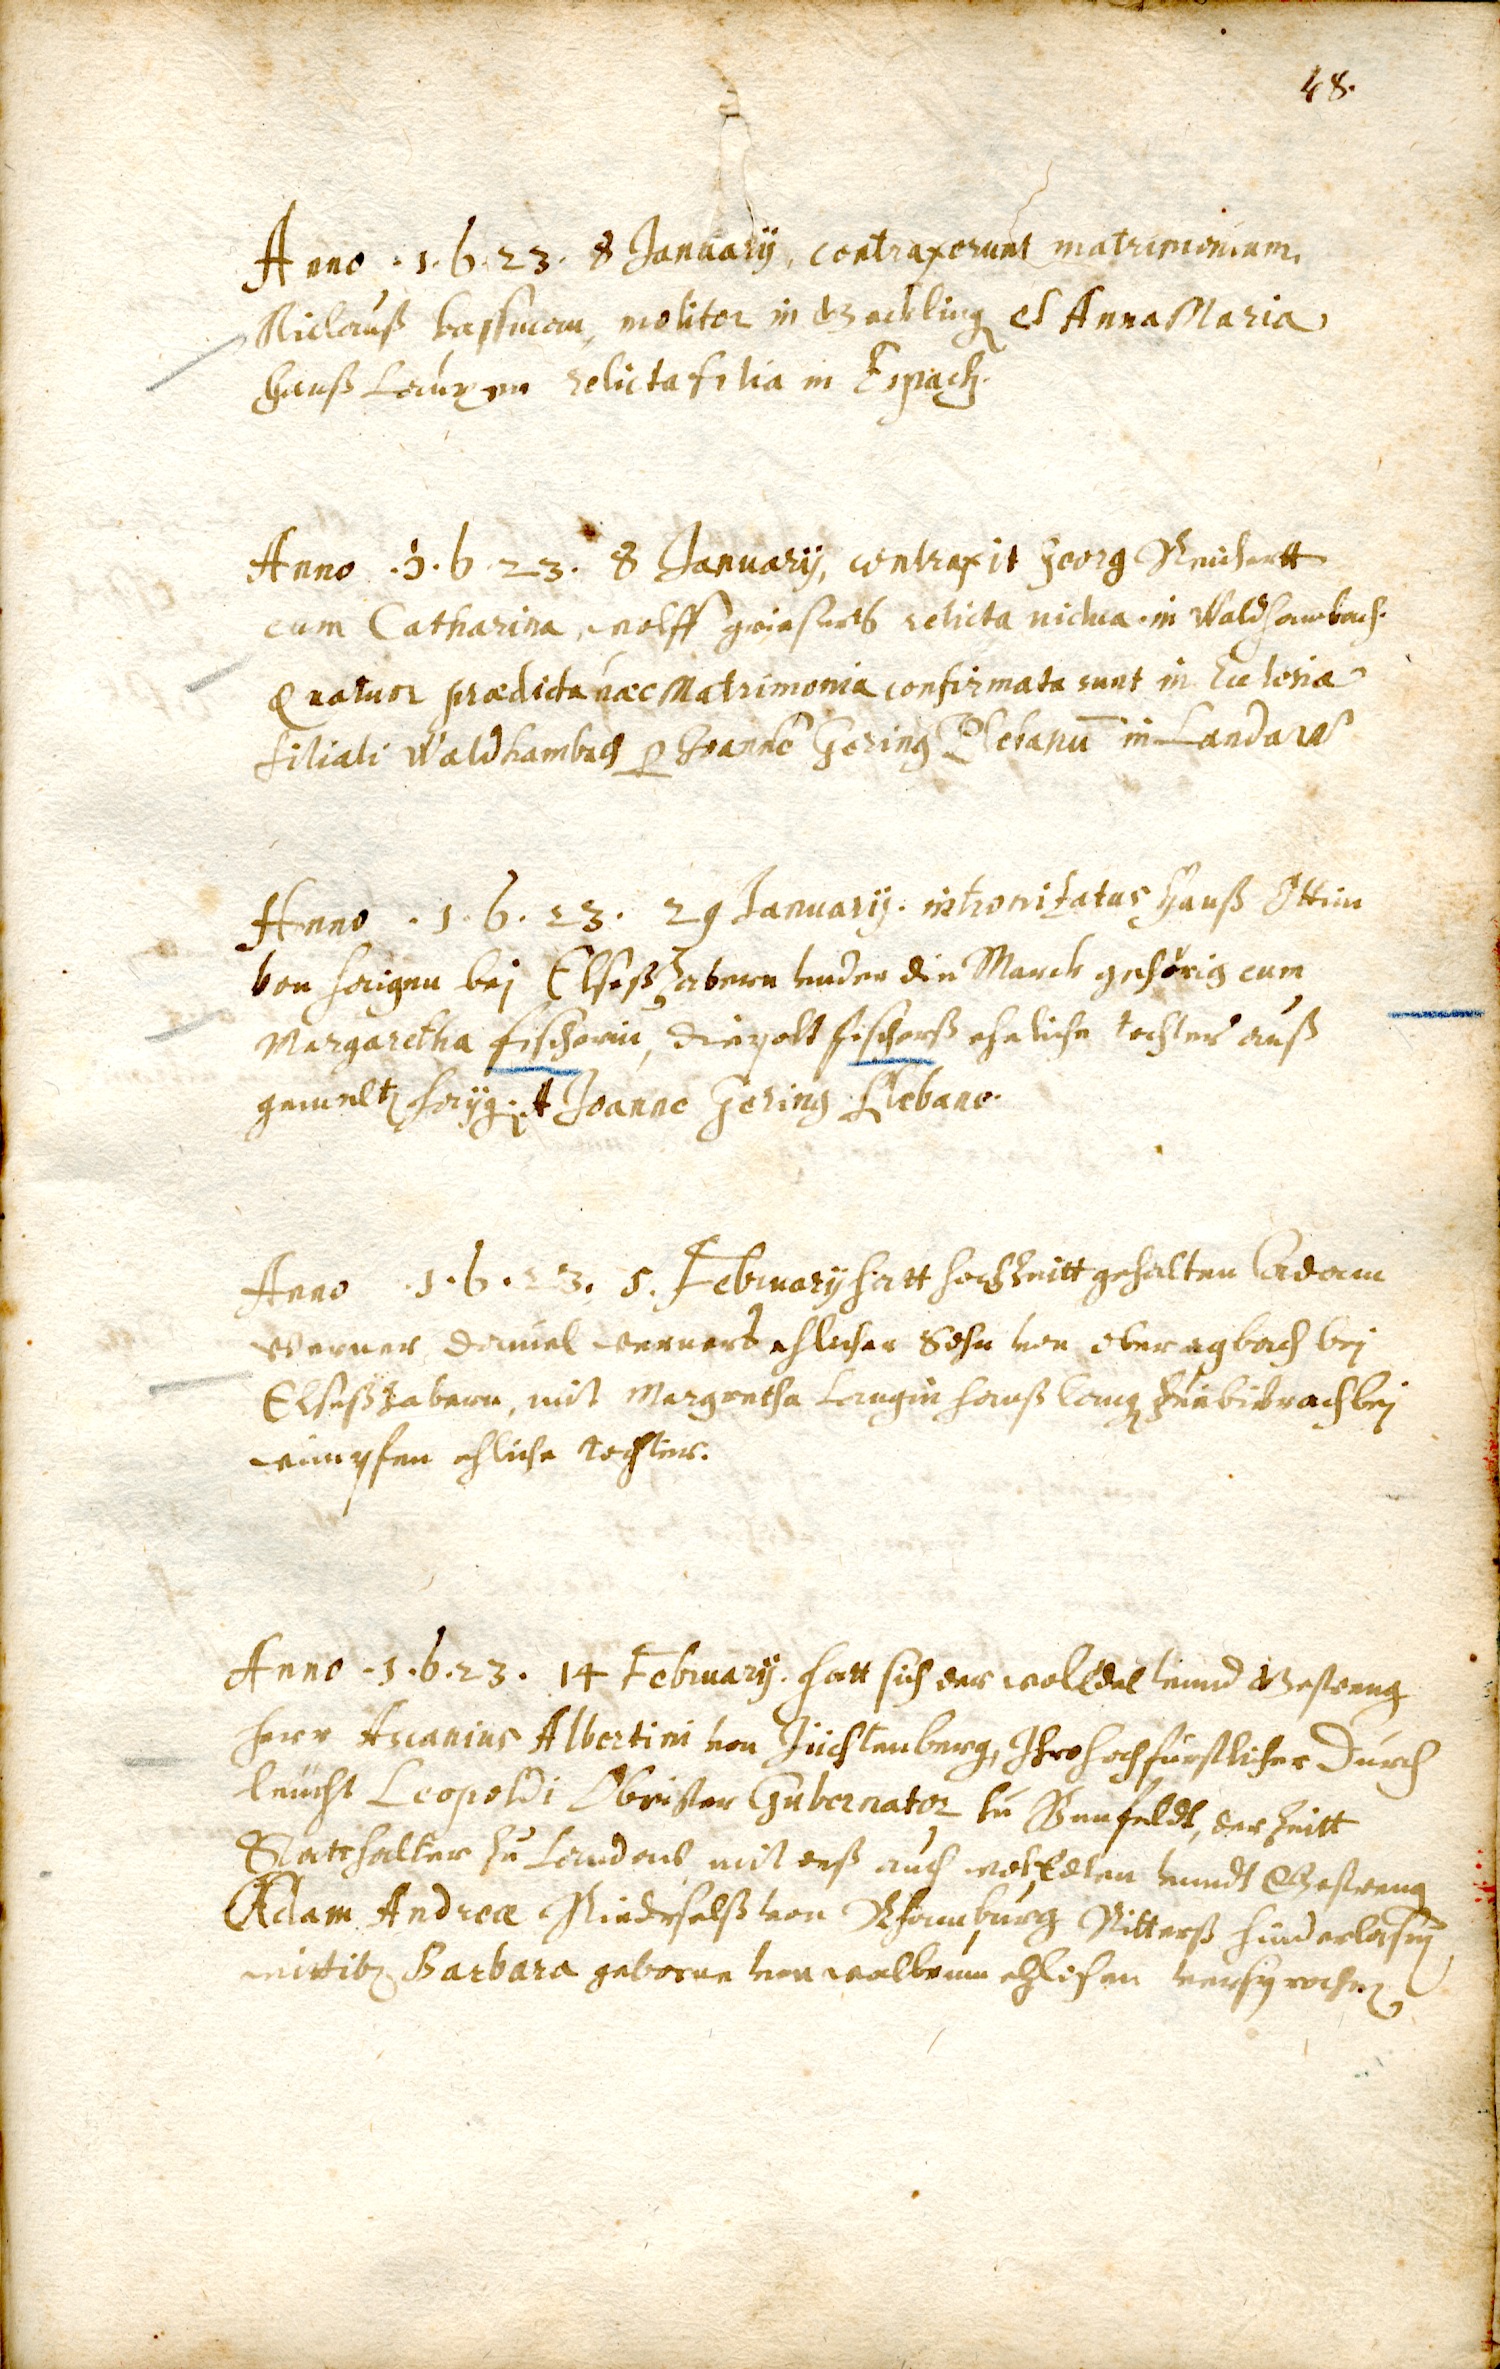 48.
Anno .1.6.23. 8 January, contraxerunt matrimonium,
Niclauß kassman, molitor in Gockling et Anna Maria
Hanß relicta filia in
Anno .1.6.23. 8 January, contraxit Georg Reichertt
cum Catharina, wolff relicta vidua in Waldhambach.
Quatuor prædicta hæc Matrimonia confirmata sunt in Ecclesia
filiali Waldhambach ꝑ Joannē Gering Plebanū in Landaw
Anno .1.6.23. 29 January. intronizatus Hanß
von bej Elseßzabern vnder die Marck gehörig cum
Margaretha fischerin, Diepolt fischerß eheliche tochter auß
gemelt A Joanne Gering Plebano.
Anno .1.6.23. 5. February hatt hochzeitt gehalten Adam
Werner Daniel Werners ehlicher Sohn von bej
Elseßzabern, mit Margretha Langin hanß lang zu bibrach bej
wimpfen ehliche tochter.
Anno .1.6.23. 14 February. hatt sich der wolEdel vnnd Gestreng
herr Ascanius Albertini von Jichtenberg, Ihro hochfürstlicher Durch
leücht Leopoldi Obrister Gubernator zu Benfeldt, der Zeitt
Statthalter zu Landaw mit deß auch wolEdlen vnndt Gestreng
Adam Andreæ von Ritterß hinderlaßn
wittib Barbara geborne von walbrunn ehlichen versprochen